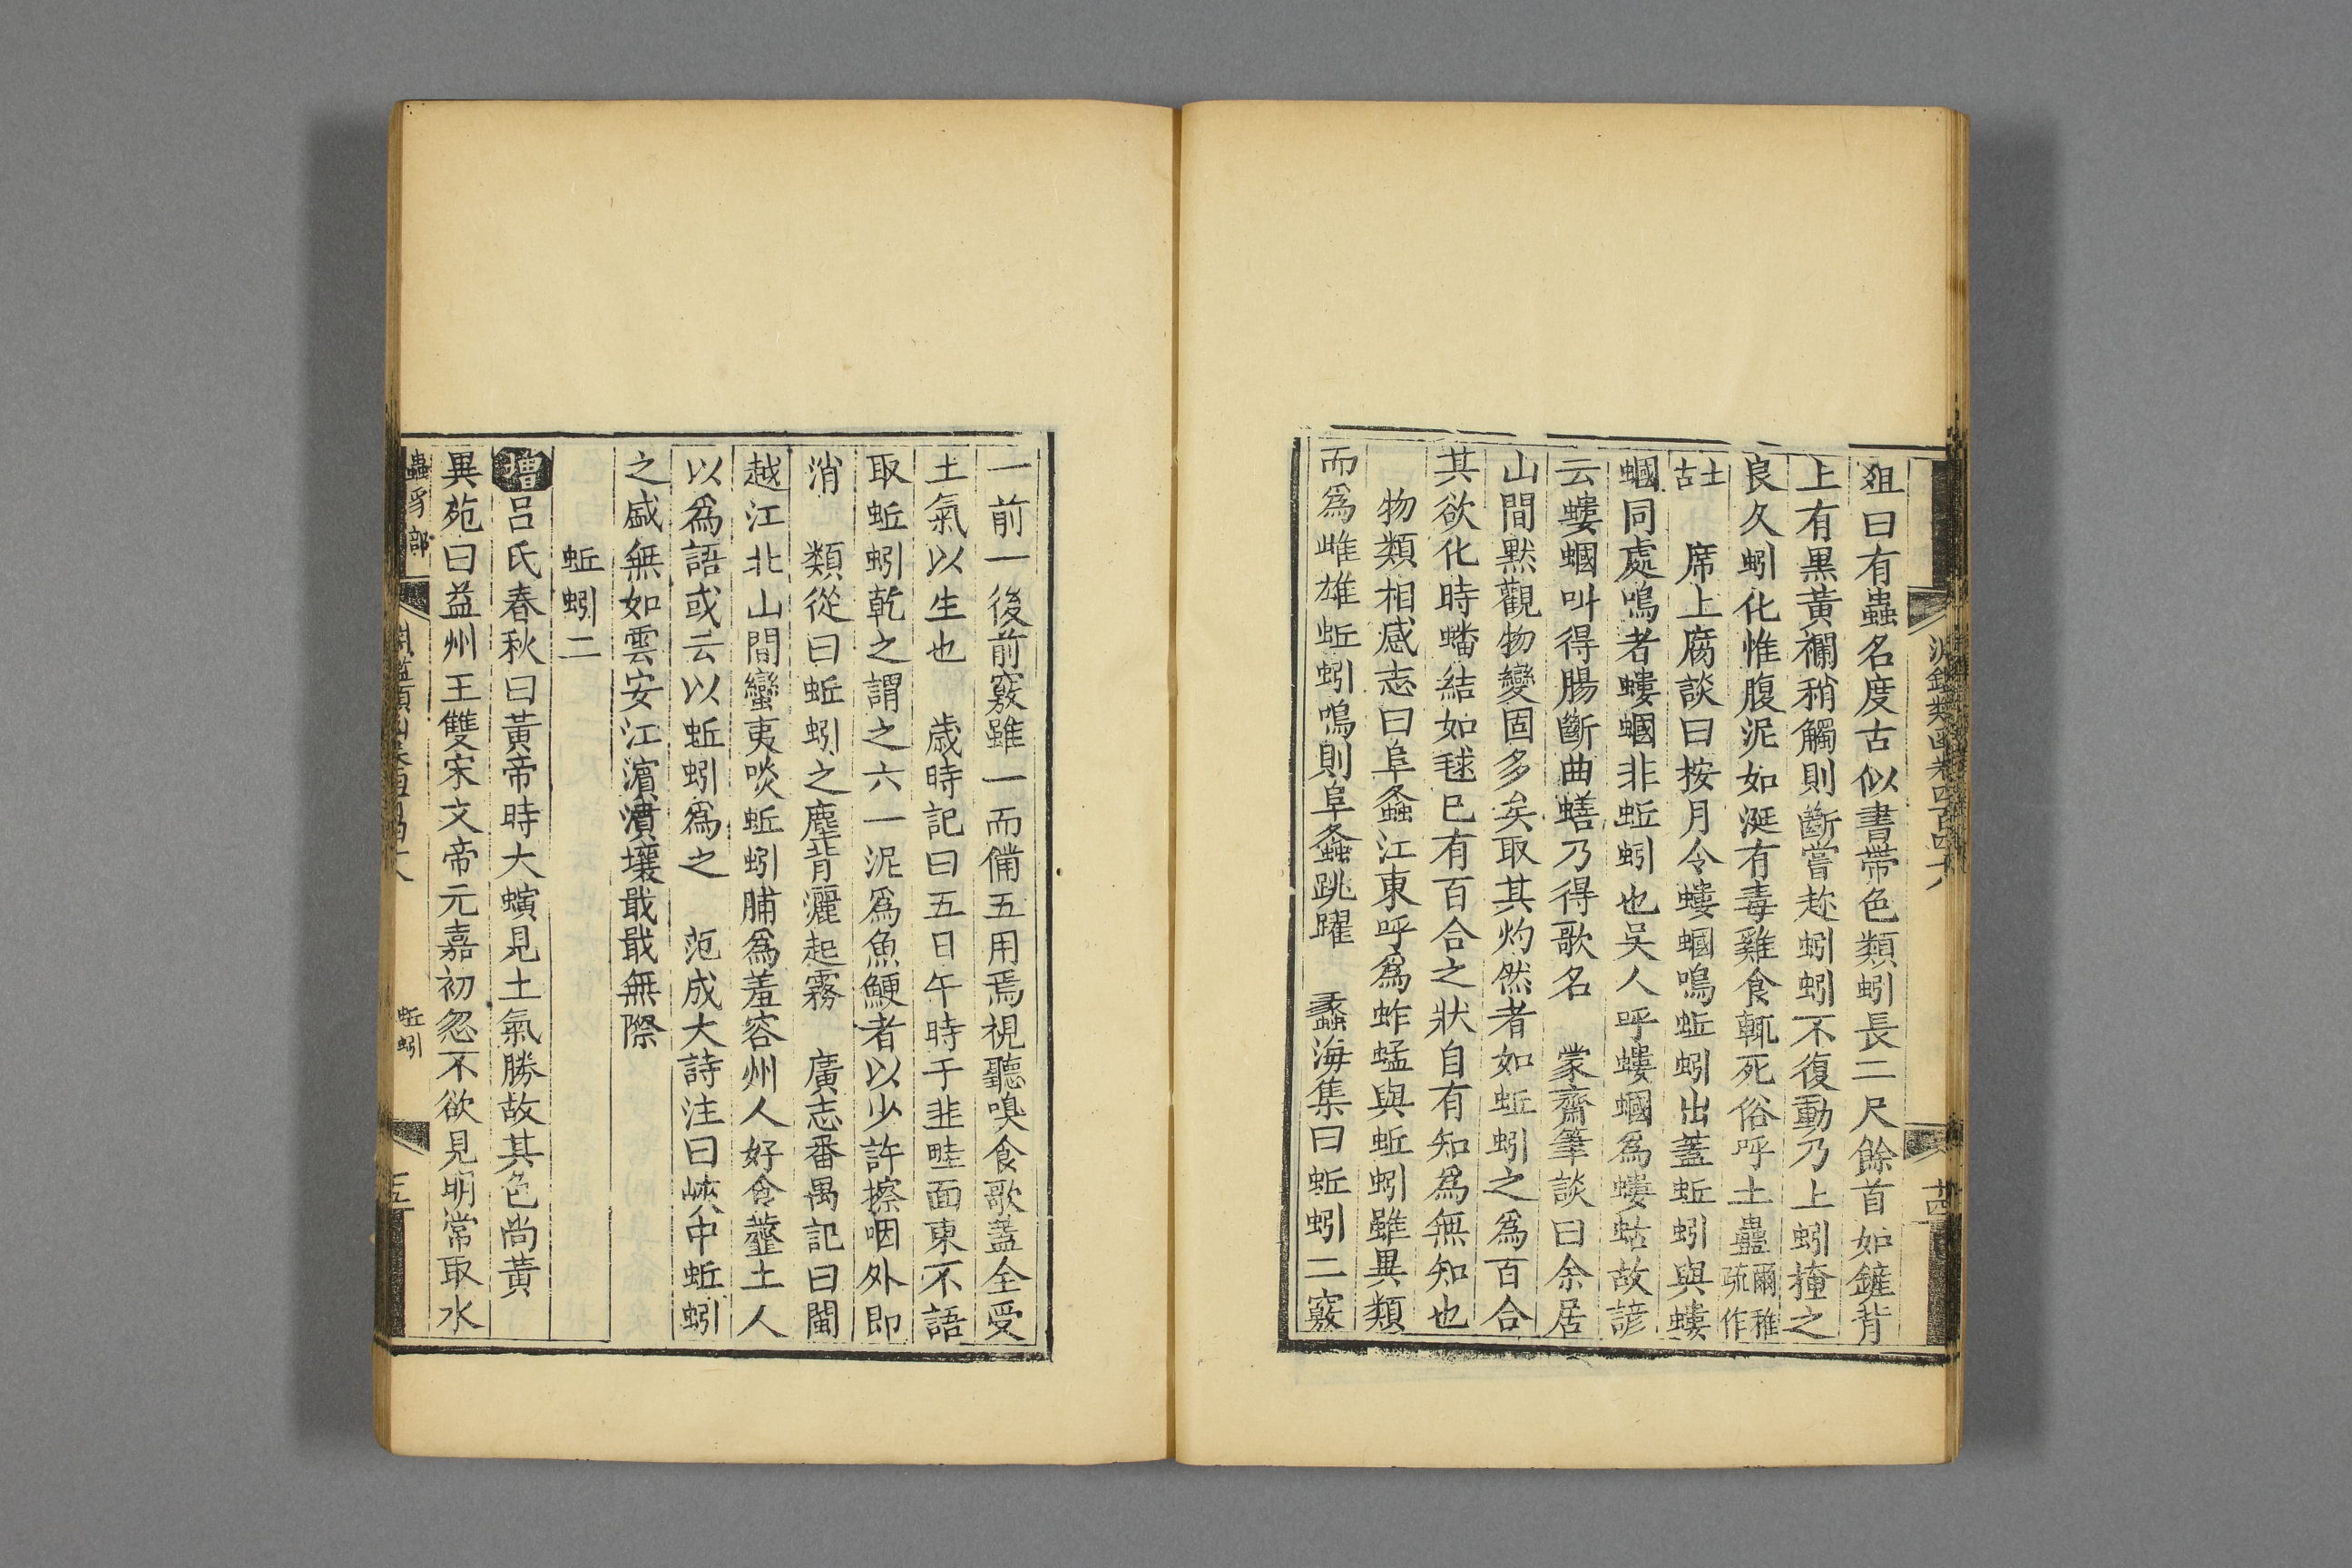 俎曰有蟲名度古似書帶色類蚓長二尺餘首如鏟背
上有黒黃襴稍觸則斷嘗趂蚓蚓不復動乃上蚓掩之
良久蚓化惟腹泥如涎有毒雞食輒死俗呼土蠱爾雅疏作
土古　席上腐談曰按月令螻蟈鳴蚯蚓出蓋蚯蚓與螻
蟈同處鳴者螻蟈非蚯蚓也吳人呼螻蟈爲螻蛄故諺
云螻蟈叫得腸斷曲蟮乃得歌名　蒙齋筆談曰余居
山間默觀物變固多矣取其灼然者如蚯蚓之爲百合
其欲化時蟠結如毬已有百合之狀自有知爲無知也
物類相感志曰阜螽江東呼爲蚱蜢與蚯蚓雖異類
而爲雌雄蚯蚓鳴則阜螽跳躍　蠡海集曰蚯蚓二竅
一前一後前竅雖一而備五用焉視聽嗅食歌蓋全受
土氣以生也　歲時記曰五日午時于韭畦面東不語
取蚯蚓乾之謂之六一泥爲魚鯁者以少許擦咽外即
消　類從曰蚯蚓之塵背灑起霧　廣志番禺記曰閩
越江北山間蠻夷啖蚯蚓脯爲羞容州人好食虀土人
以爲語或云以蚯蚓爲之　范成大詩注曰峽中蚯蚓
之盛無如雲安江濵濆壤戢戢無際
蚯蚓二
增呂氏春秋曰黃帝時大螾見土氣勝故其色尚黃
異苑曰益州王雙宋文帝元嘉初忽不欲見明常取水
蟲豸部
蚯蚓